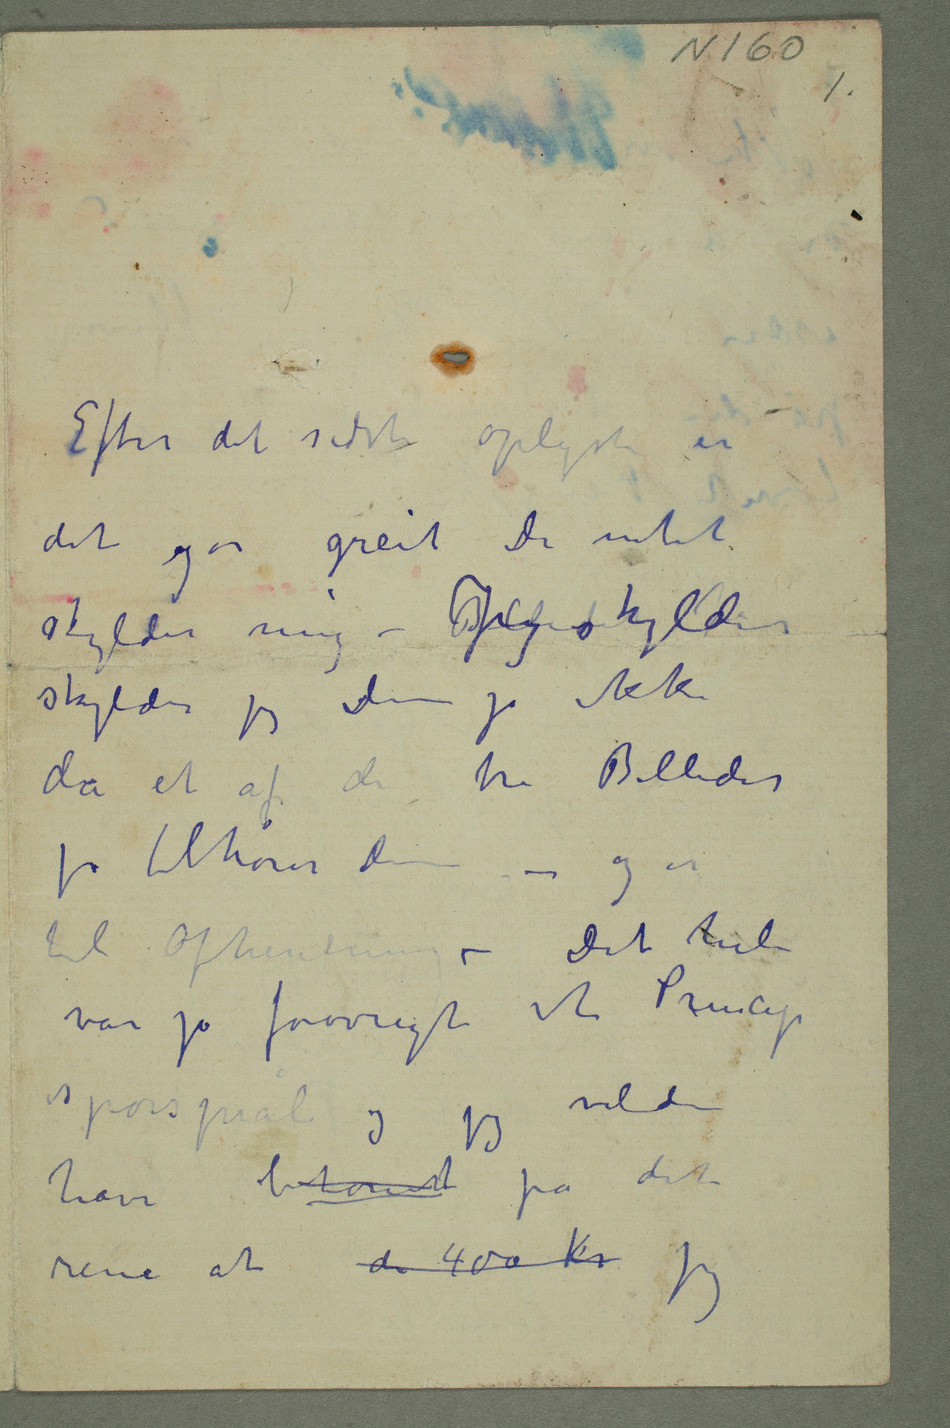 N 160
1.
Efter det sidste oplyste er
det jo greit De intet
skylder mig –
skylder jeg Dem jo ikke
da et af de tre Billeder
jo tilhører dem – og er
til Afhentning – Det hele
var jo forøvrigt et Princip
spørsmål og jeg vilde
have betonet på det
rene at de 400 Kr jeg